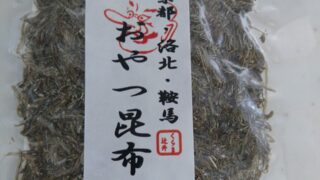 京都・洛北・鞍馬
おやつ昆布
くらま
辻井